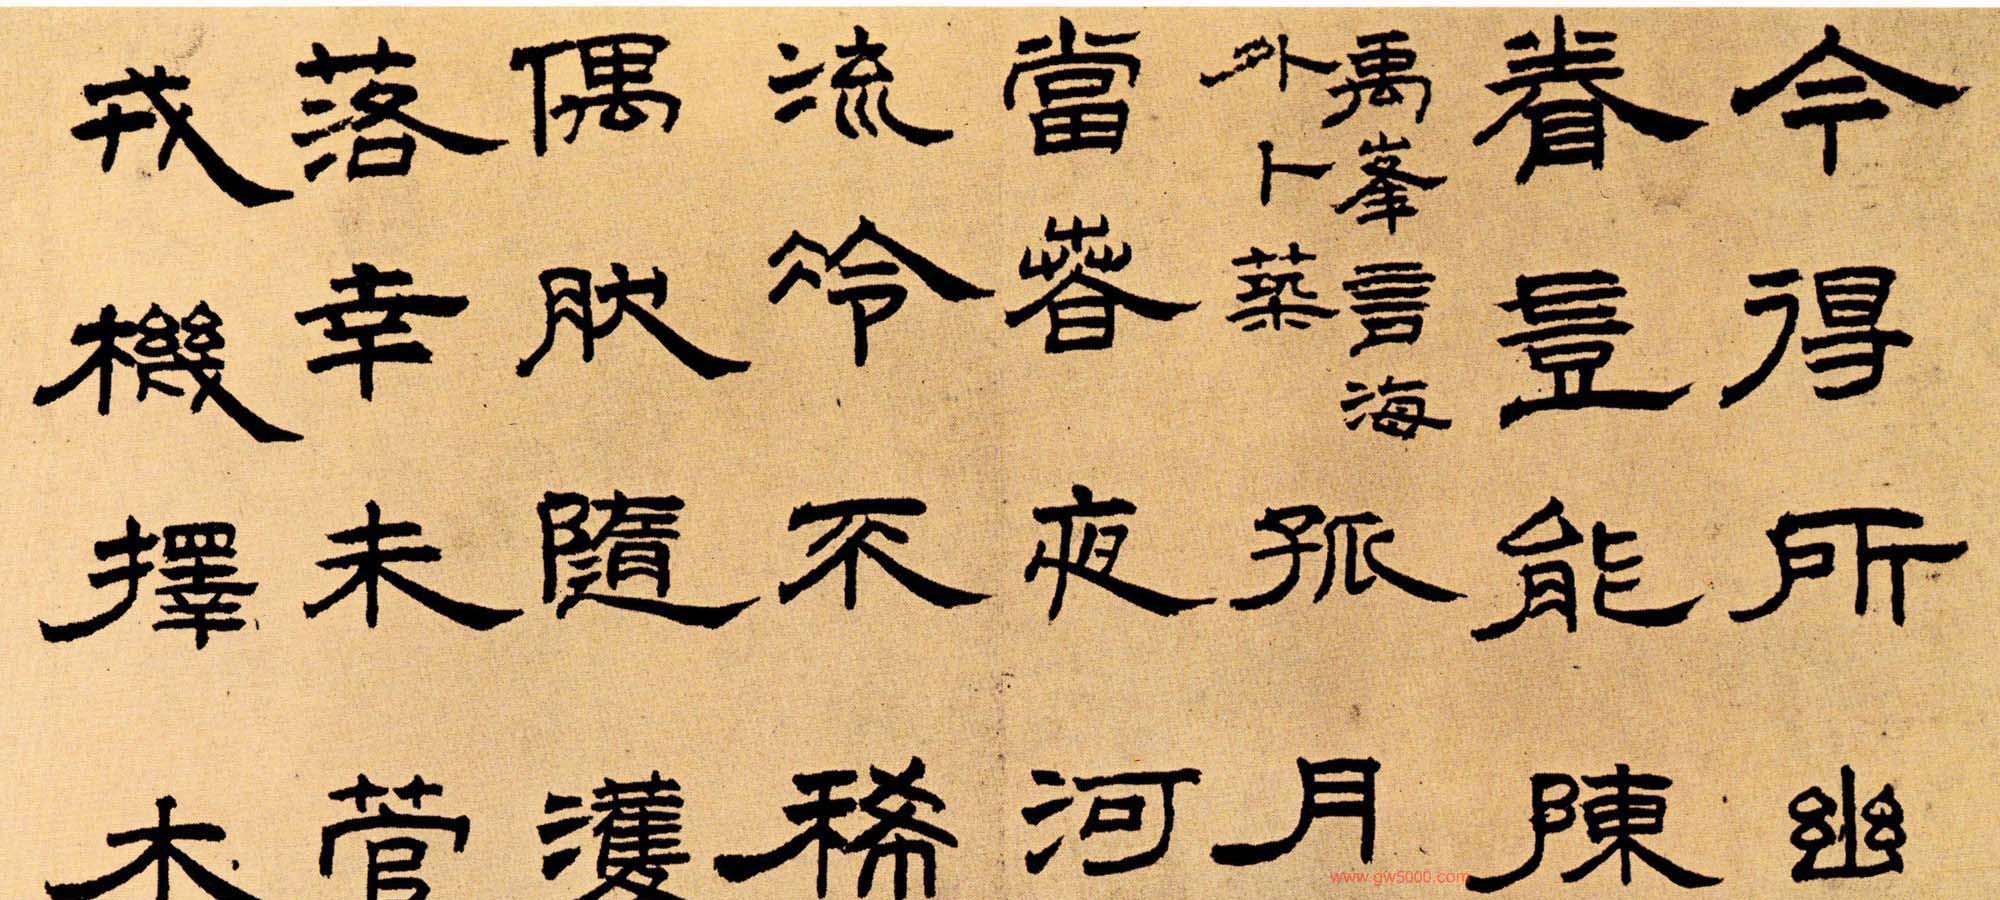 今得所幽
眷豈能陳
禹峯言海
外卜築
孤月
當蒼夜河
流冷不稀
偶耿隨濩
落幸未菅
戎機擇木
www.gw5000.com